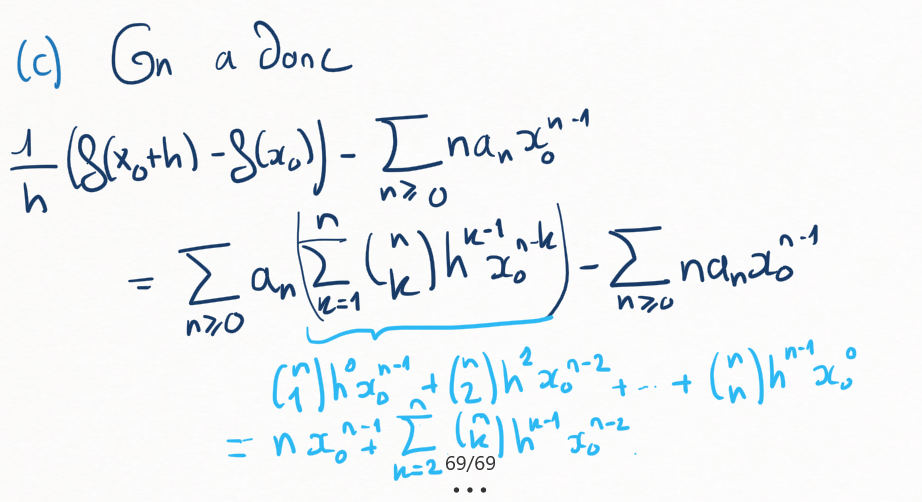 (c) On a donc
1/h (f(x₀+h) - f(x₀)) - ∑_{n≥0} n aₙ x₀^{n-1}
= ∑_{n≥0} aₙ (∑_{k=1}^{n} (n k) h^{k-1} x₀^{n-k}) - ∑_{n≥0} n aₙ x₀^{n-1}
(n 1) h⁰ x₀^{n-1} + (n 2) h² x₀^{n-2} + ... + (n n) h^{n-1} x₀⁰
= n x₀^{n-1} + ∑_{k=2}^{n} (n k) h^{k-1} x₀^{n-2}
69/69